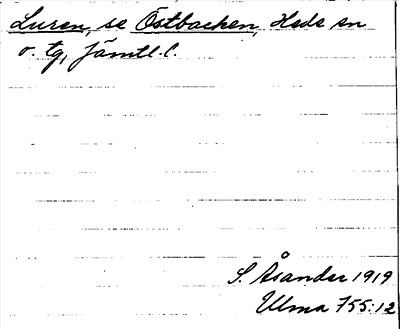 Luren, se Östbacken, Hede sn
o. tg, Jämtl. l.
S. Åsander 1919
Ulma 755:12